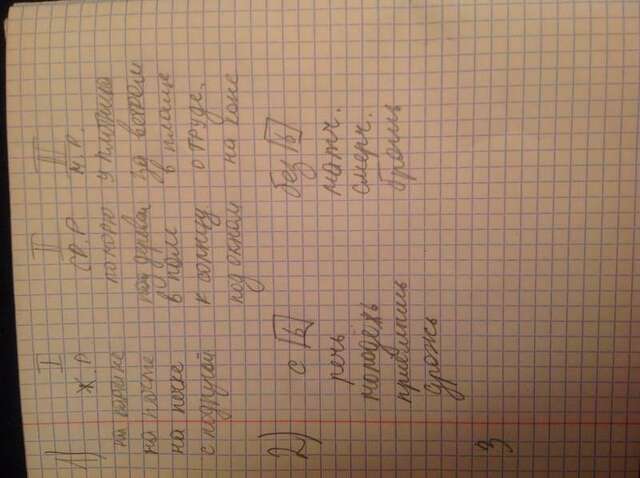 1) I II III
Ж.Р СР.Р М.Р.
на по морю у плотника
на почте под деревом за веткам
на печке в поле в плаще
с подругой к солнцу о труде.
под окном на коне
2) с ь без ь
речь матч.
молодёжь смерч.
брошь
дрожь
3